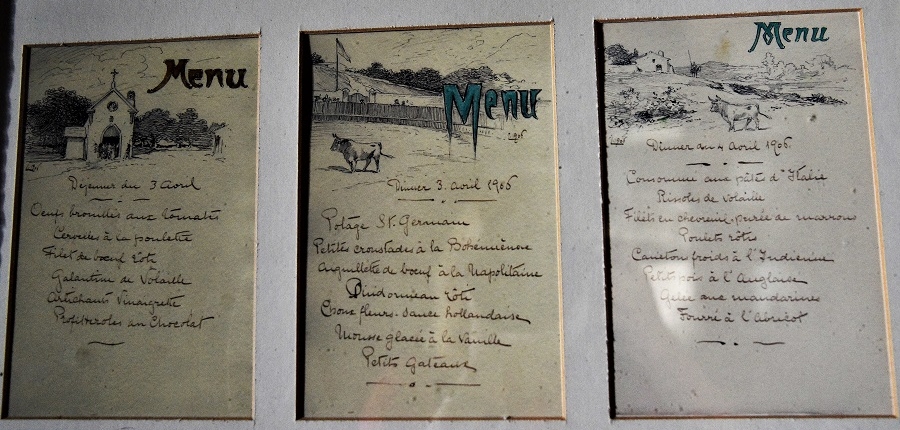 Menu
Déjeuner du 3 Avril
Oeufs brouillés aux tomates
Cervelles à la poulette
Filet de boeuf rôti
Galantine de Volaille
Artichauts Vinaigrette
Profiteroles au Chocolat
Menu
1906
Dinner 3. avril 1906
Potage St. Germain
Petites croustades à la Bohémienne
Aiguillette de boeuf à la Napolitaine
Dindonneau rôti
Choux fleurs. sauce hollandaise
Mousse glacée à la Vanille
Petits Gateaux
Menu
Dinner du 4 Avril 1906.
Consommé aux pâtes d'Italie
Rissoles de volaille
Filets en chevreuil. purée de marrons
Poulets rôtis
Caneton froids à l'Indienne
Petits pois à l'Anglaise
Gelée aux mandarines
Fourré à l'Abricot